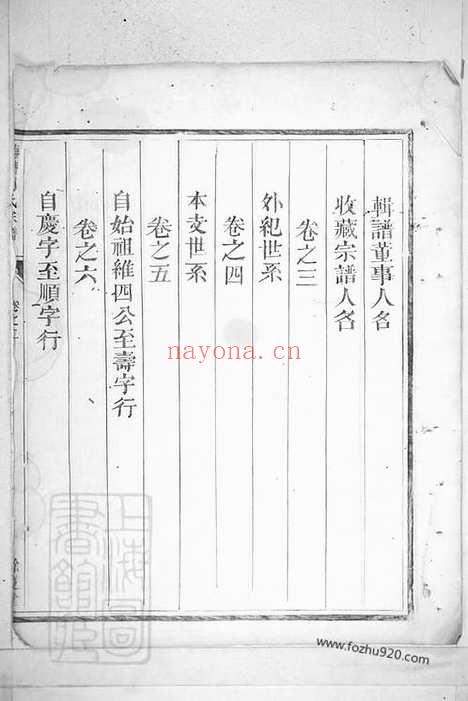 輯譜董事人名
收藏宗譜人名
卷之三
外紀世系
卷之四
本支世系
卷之五
自始祖維四公至壽字行
卷之六
自慶字至順字行
nayona.cn
上海圖書館藏
www.fozhu920.com